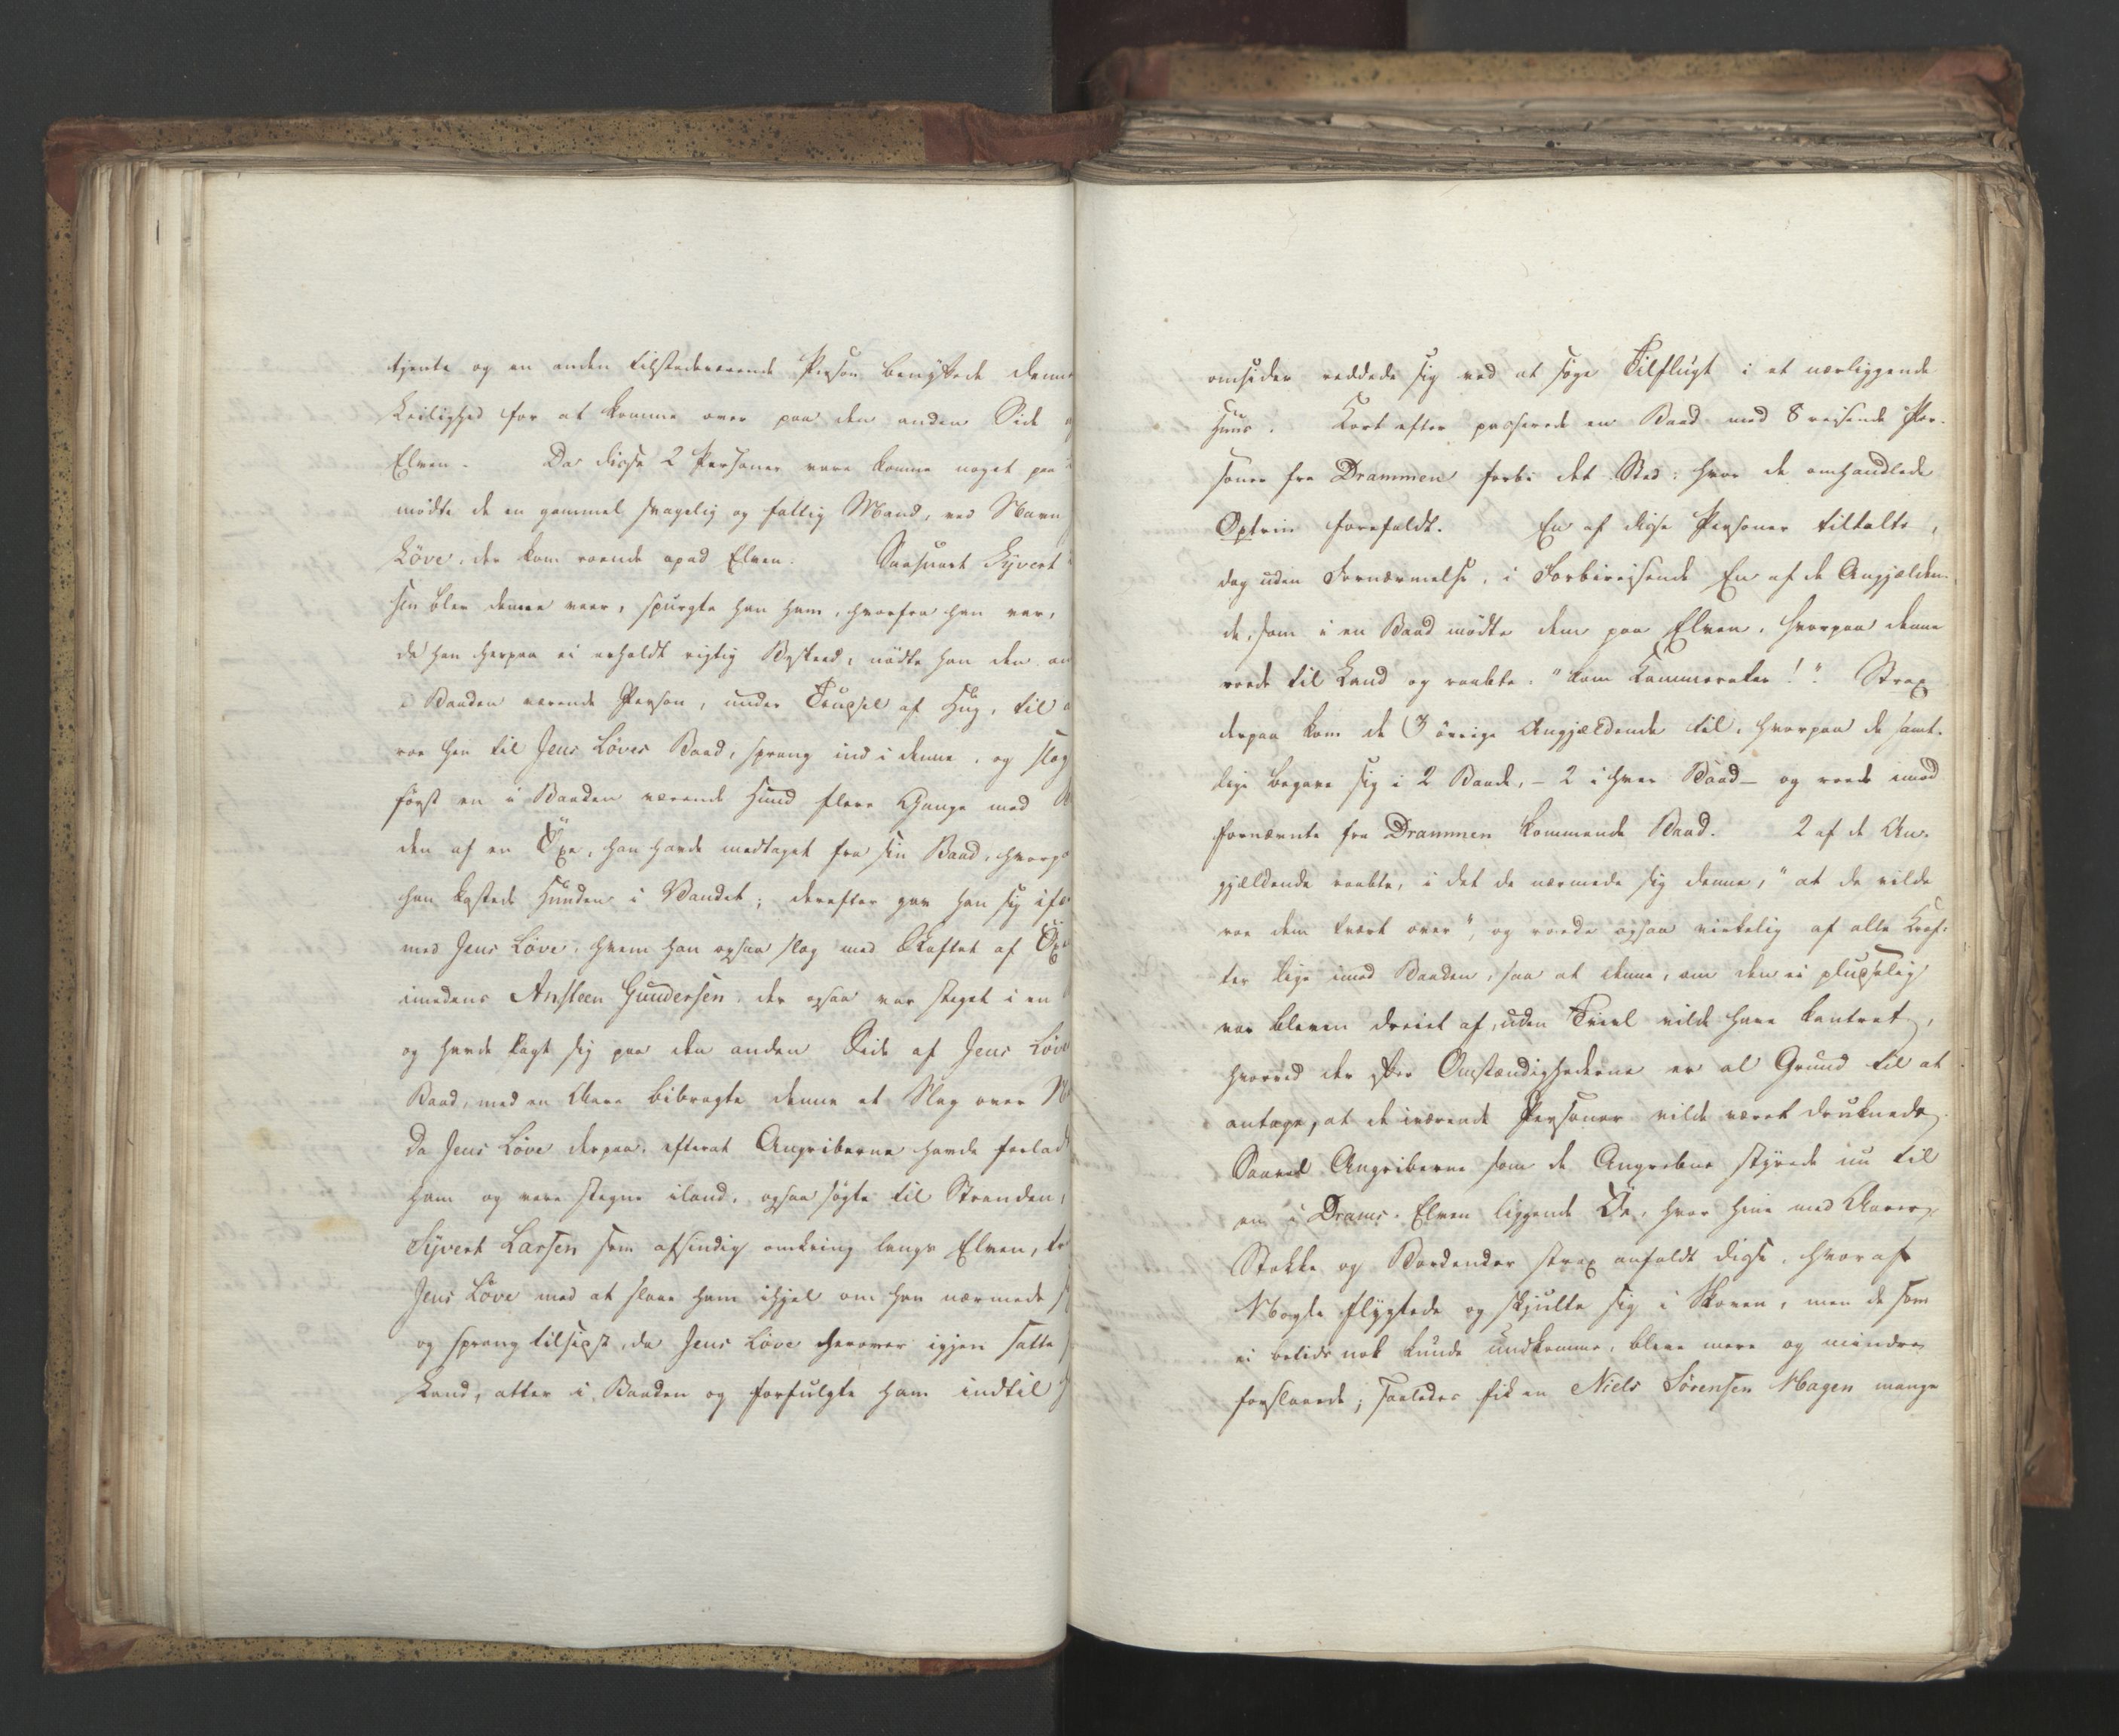 tjente og en anden tilstedeværende Person benyttede denne
Leilighed for at komme over paa den anden Side
Elven. Da disse 2 Personer vare komne noget paa
mødte de en gammel svagelig og fattig Mand, ved Navn
Löve, der kom roende opad Elven. Saasnart Syvert
sen blev denne vaer, spurgte han ham, hvorfra han var,
da han herpaa ei erholdt rigtig Beskeed, nödte han den
i Baaden værende Person, under Trudsel af Hug, til
roe hen til Jens Löves Baad, sprang ind i denne, og slog
først en i Baaden værende Hund flere Gange med
den af en Öxe, han havde medtaget fra sin Baad,
han kastede Hunden i Vandet; derefter gav han sig
med Jens Löve, hvem han ogsaa slog med Skaftet af Öxe
imedens Ansteen Gundersen, der ogsaa var steget i en
og havde lagt sig paa den anden Side af Jens Löve
Baad, med en Aare bibragte denne et Slag over
Da Jens Löve derpaa, efterat Angriberne havde forladt
ham og vare stegne iland, ogsaa søgte til Stranden,
Syvert Larsen som afsindig omkring langs Elven,
Jens Löve med at slaae ham ihjel om han nærmede
og sprang tilsidst, da Jens Löve herover igjen satte
Land, atter i Baaden og forfulgte ham indtil
omsider reddede sig ved at søge Tilflugt i et nærliggende
Huus. Kort efter passerede en Baad med 8 reisende Per-
soner fra Drammen forbi det Sted: hvor de omhandlede
Optrin forefaldt. En af disse Personer tiltalte,
dog uden Fornærmelse, i Forbireisende En af de Angjælden-
de, som i en Baad mødte dem paa Elven, hvorpaa denne
roede til Land og raabte: "kom Kammerater!" Strax
derpaa kom de 3 øvrige Angjældende til, hvorpaa de samt-
lige begave sig i 2 Baade, - 2 i hver Baad - og roede imod
fornævnte fra Drammen kommende Baad. 2 af de An-
gjældende raabte, i det de nærmede sig denne, "at de vilde
roe dem tvært over", og roede ogsaa virkelig af alle Kræf-
ter lige imod Baaden, saa at denne, om den ei pludselig
var bleven dreiet af, uden Tvivl vilde have kantret,
hvorved der efter Omstændighederne er al Grund til at
antage, at de iværende Personer vilde været druknede.
Saavel Angriberne som de Angrebne styrede nu til
en i Drams-Elven liggende Öe, hvor hine med Aarer,
Stokke og Bordender strax anfaldt disse, hvoraf
Nogle flygtede og skjulte sig i Skoven, men de som
ei betids nok kunde undkomme, bleve mere og mindre
forslaaede; saaledes fik en Niels Sörensen Hagen mange